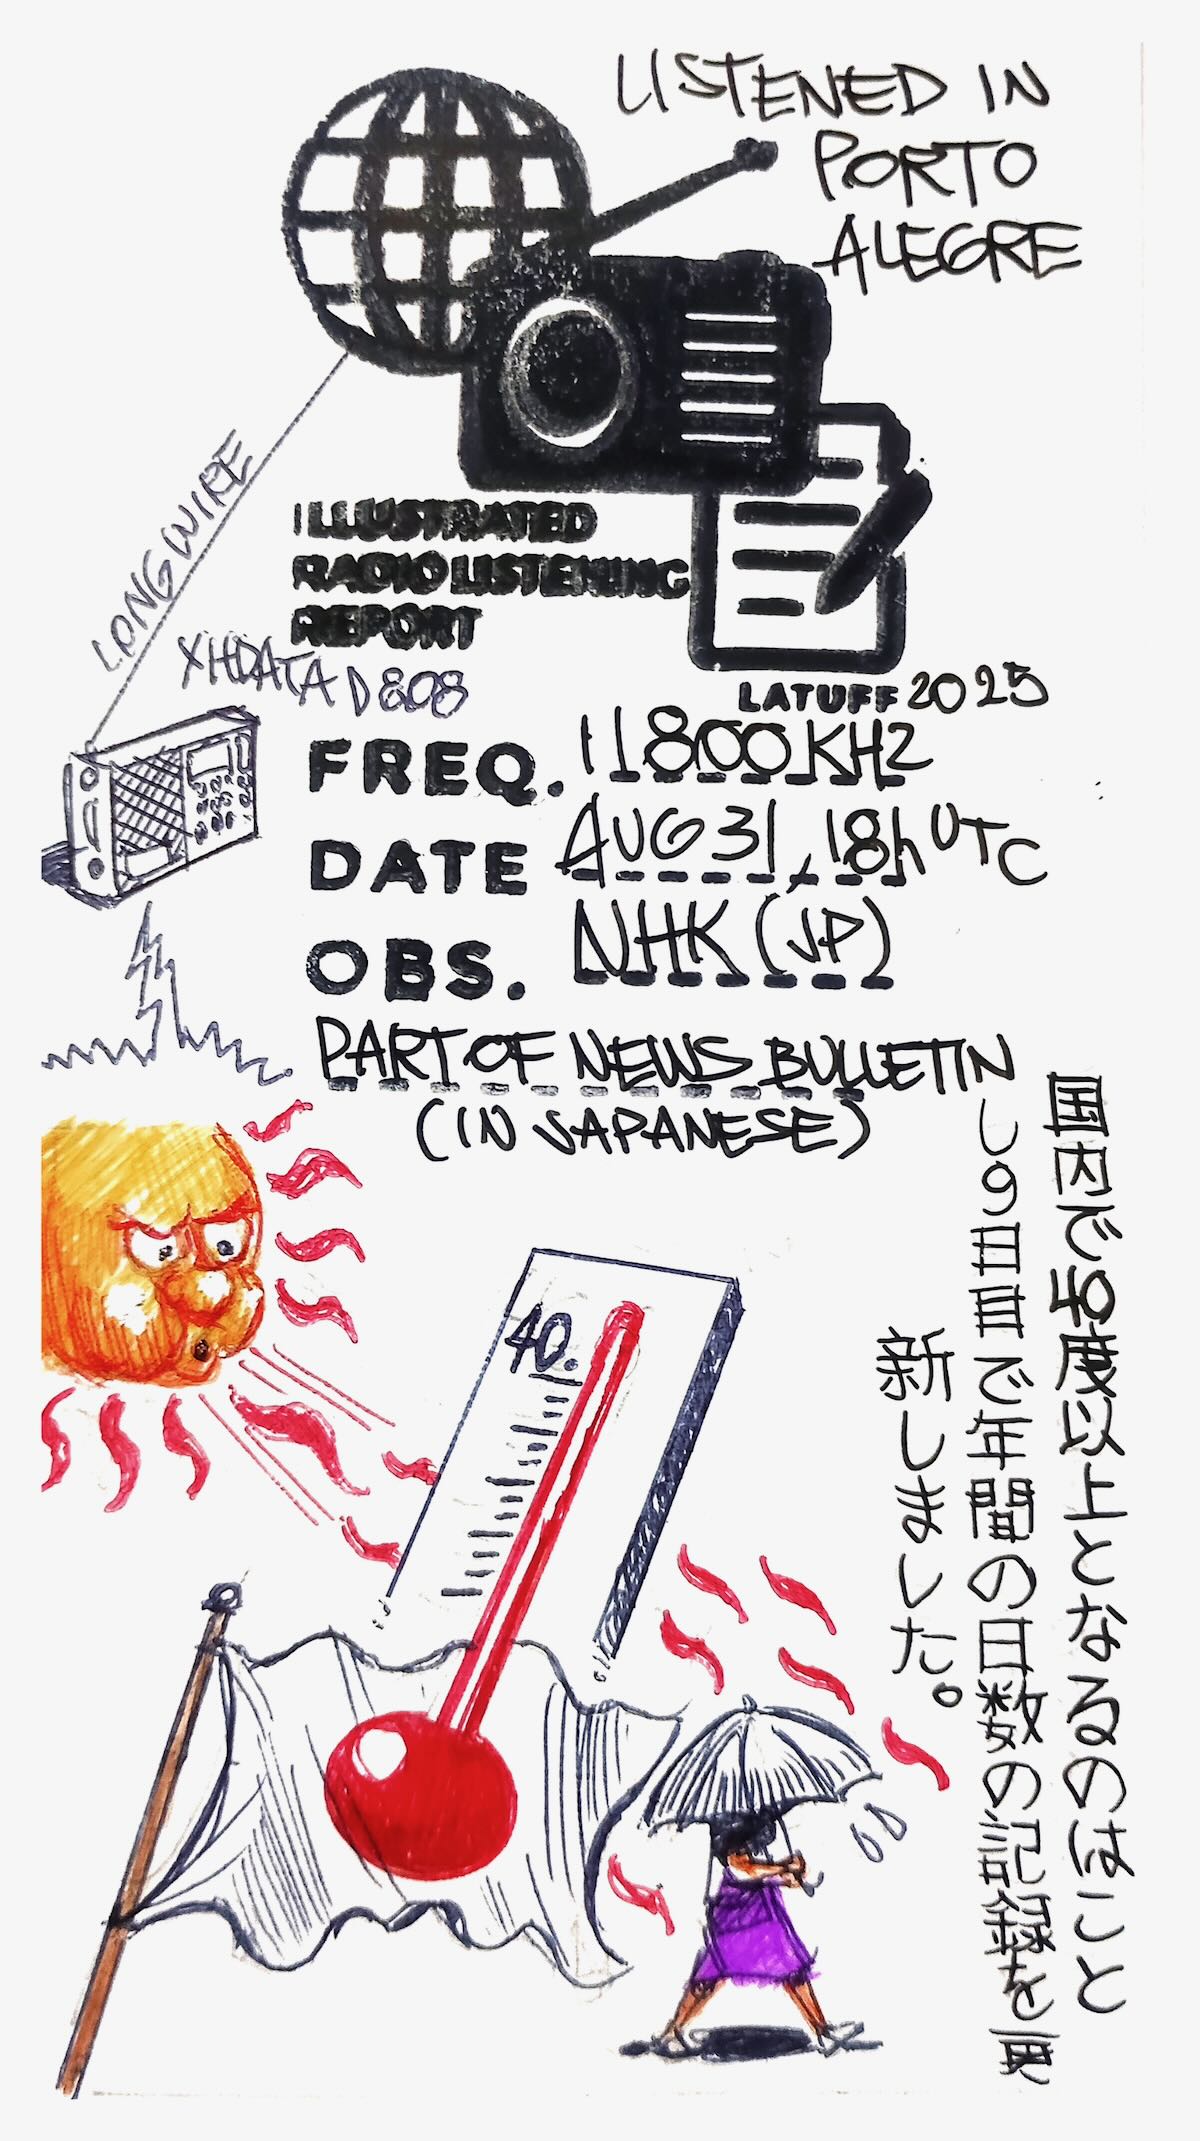 LISTENED IN
PORTO
ALEGRE
LONG WIRE
ILLUSTRATED
RADIO LISTENING
REPORT
XHDATA D808
LATUFF 2025
FREQ. 11800 KHZ
DATE AUG 31, 18h UTC
OBS. NHK (JP)
PART OF NEWS BULLETIN
(IN JAPANESE)
国内で40度以上となるのはこと
し9日目で年間の日数の記録を更
新しました。
40.